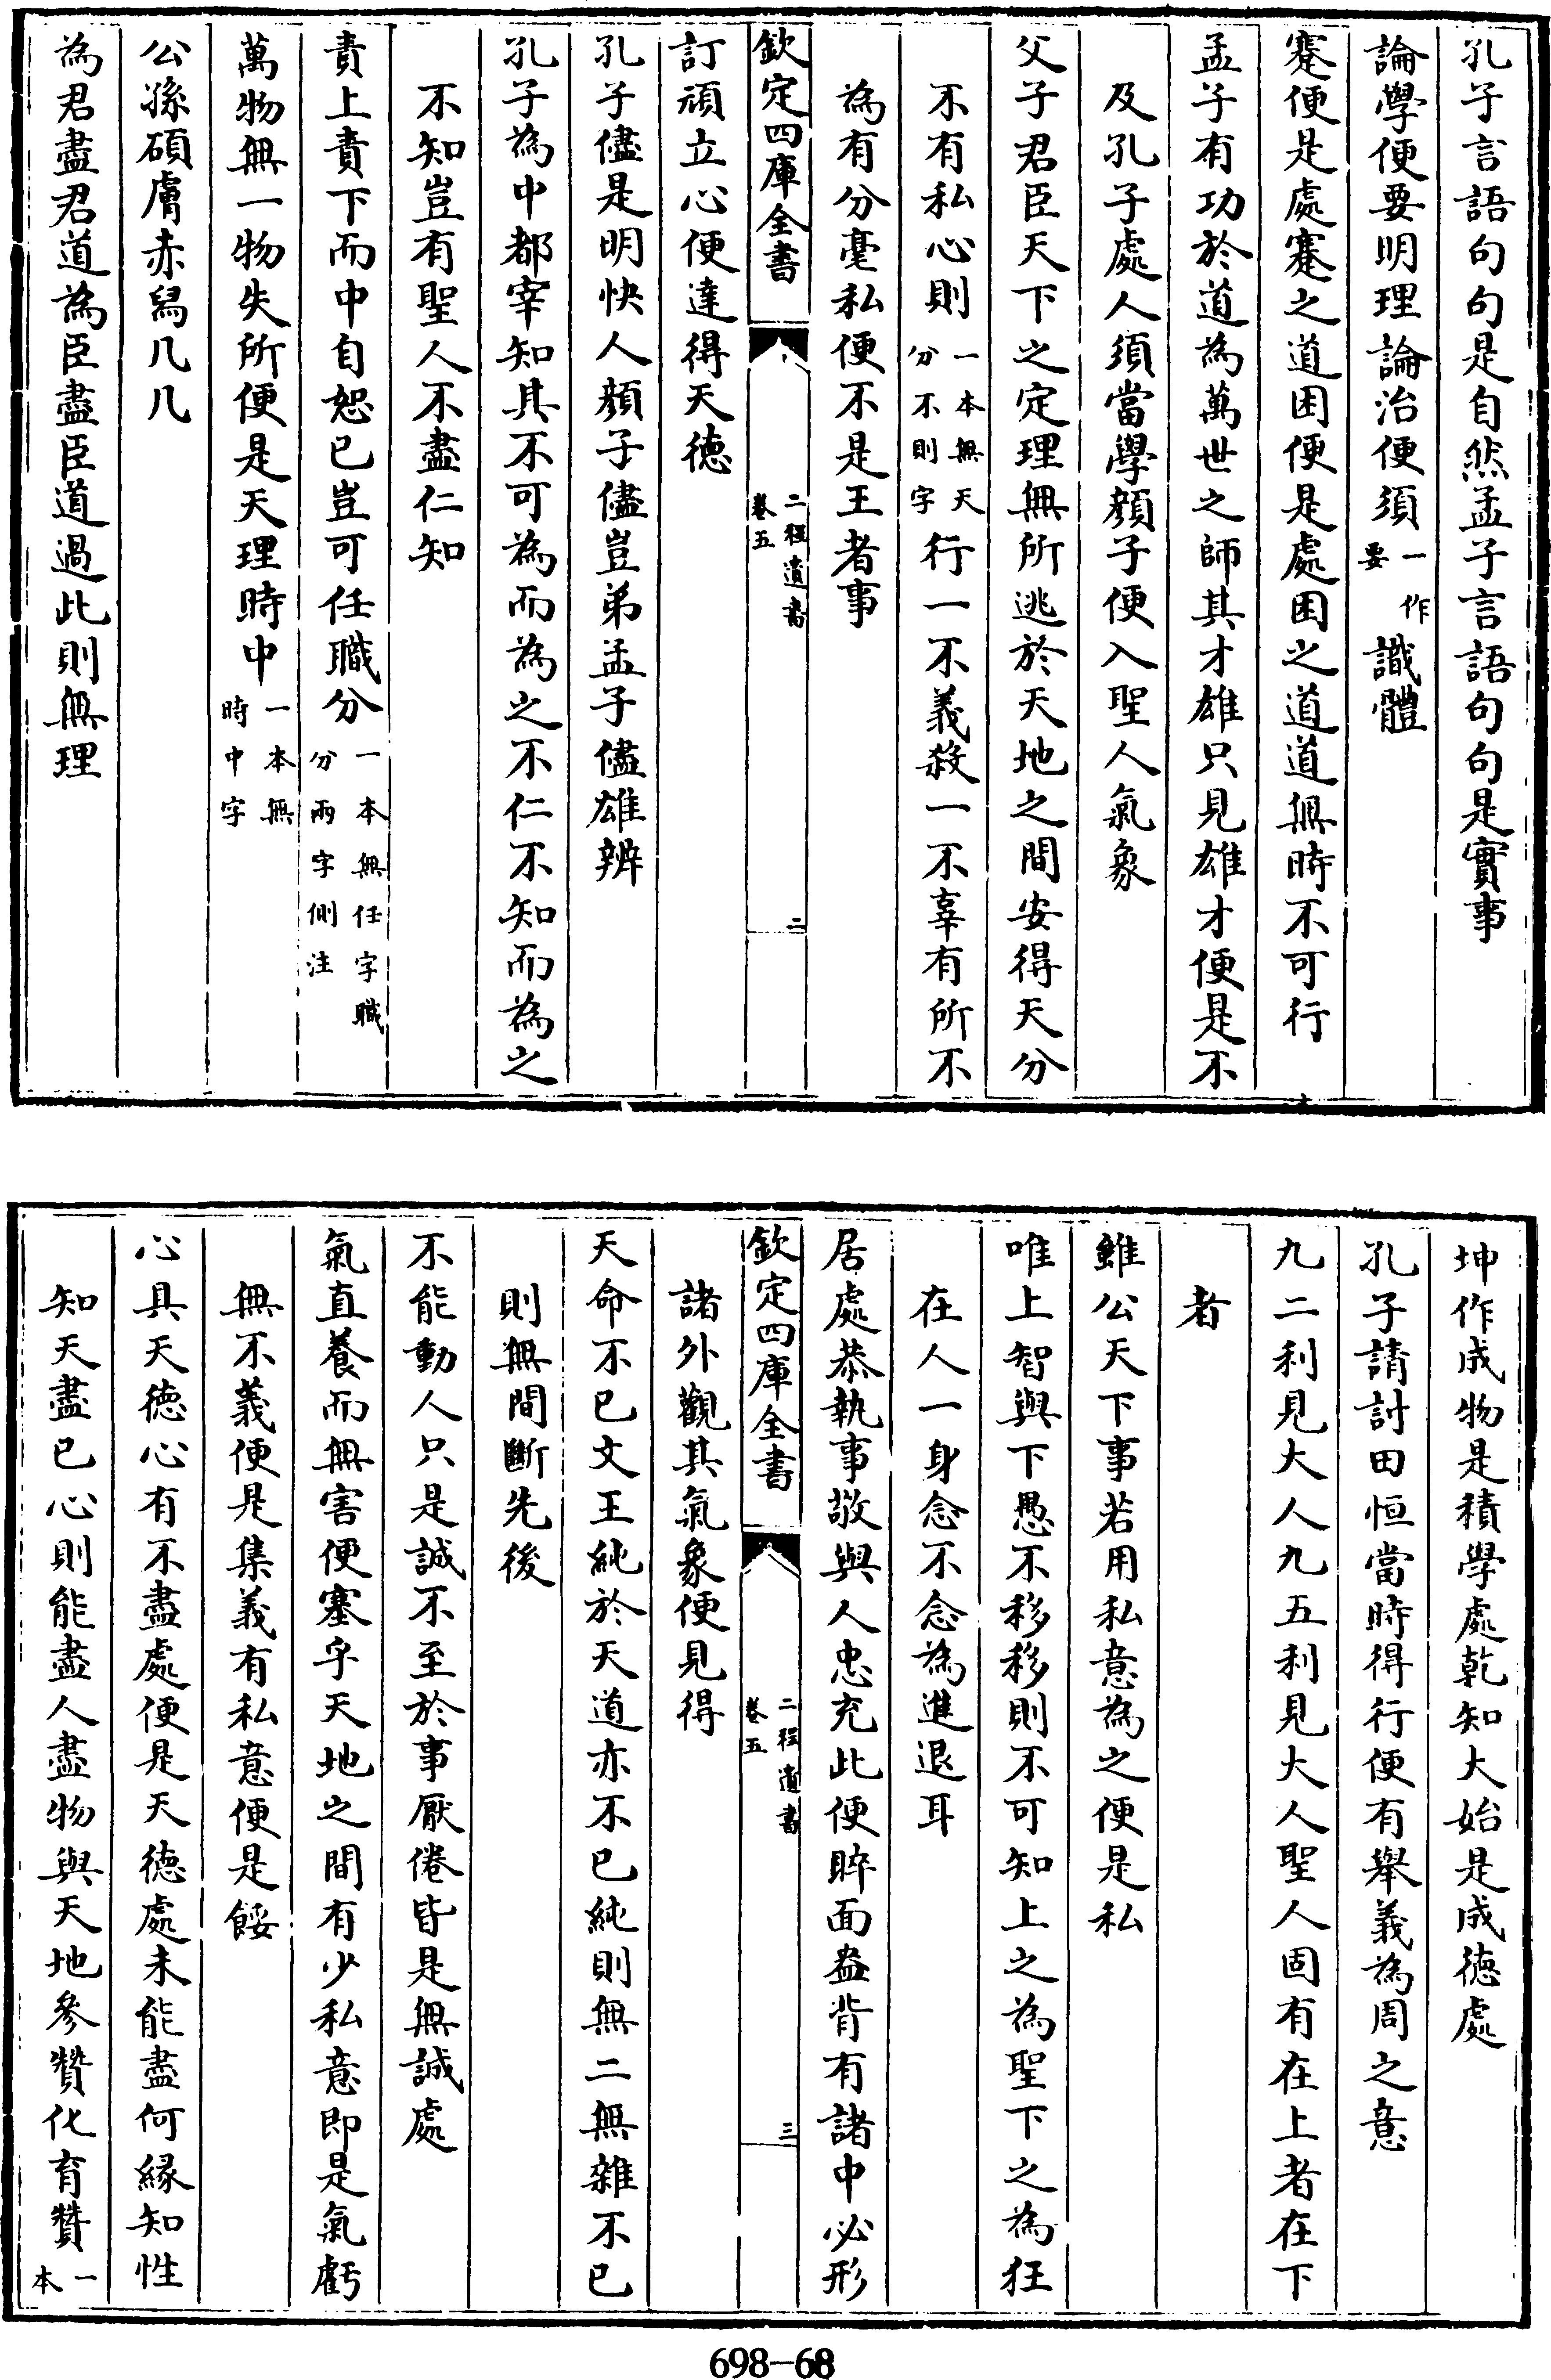 孔子言語句句是自然孟子言語句句是實事
論學便要明理論治便須一作要識體
蹇便是處蹇之道困便是處困之道道無時不可行
孟子有功於道為萬世之師其才雄只見雄才便是不
及孔子處人須當學顏子便入聖人氣象
父子君臣天下之定理無所逃於天地之間安得天分
不有私心則一本無天分不則字行一不義殺一不辜有所不
為有分毫私便不是王者事
欽定四庫全書
二程遺書
卷五
二
訂頑立心便達得天德
孔子儘是明快人顏子儘豈弟孟子儘雄辨
孔子為中都宰知其不可為而為之不仁不知而為之
不知豈有聖人不盡仁知
責上責下而中自恕己豈可任職分一本無任字職分兩字側注
萬物無一物失所便是天理時中一本無時中字
公孫碩膚赤舄几几
為君盡君道為臣盡臣道過此則無理
坤作成物是積學處乾知大始是成德處
孔子請討田恒當時得行便有舉義為周之意
九二利見大人九五利見大人聖人固有在上者在下
者
雖公天下事若用私意為之便是私
唯上智與下愚不移移則不可知上之為聖下之為狂
在人一身念不念為進退耳
居處恭執事敬與人忠充此便睟面盎背有諸中必形
欽定四庫全書
二程遺書
卷五
三
諸外觀其氣象便見得
天命不已文王純於天道亦不已純則無二無雜不已
則無間斷先後
不能動人只是誠不至於事厭倦皆是無誠處
氣直養而無害便塞乎天地之間有少私意即是氣虧
無不義便是集義有私意便是餒
心具天德心有不盡處便是天德處未能盡何緣知性
知天盡已心則能盡人盡物與天地參贊化育贊一本
698-68